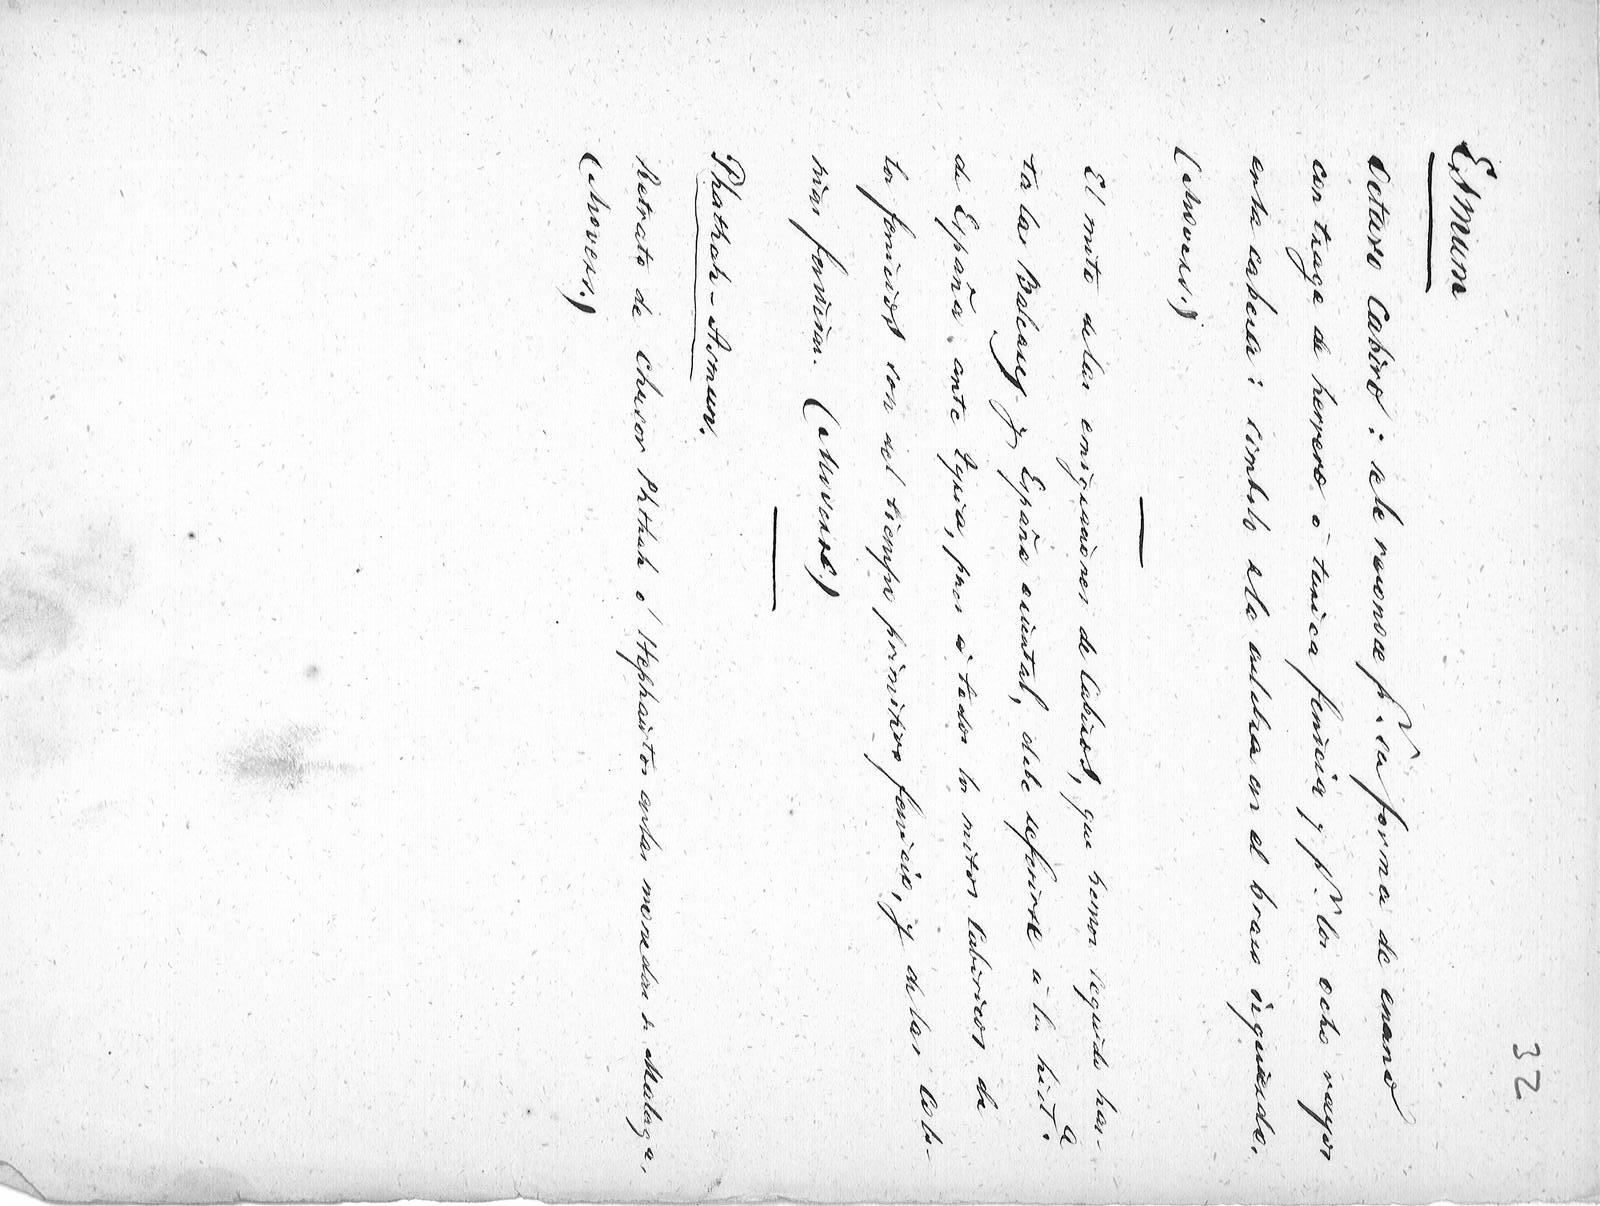 32
Esmum
Octavo Cabiro: se le reconoce pr. su forma de enano
con trage de herrero ó tunica fenicia y pr. los ocho rayos
en la cabeza: simbolo ela culebra en el brazo izquierdo.
(Movers.)
El mito de las emigraciones de Cabiros, que hemos seguido has-
ta las Baleares y España oriental, debe referirse á la hist.a
de España ante tyria, pues á todos los mitos Cabiricos de
los fenicios son del tiempo primitivo fenicio, y de las Colo-
nias fenicias. (Movers)
Phathah-Asmun.
Retrato de Chusor Phthah ó Hephaistos en las monedas de Malaga.
(Movers.)